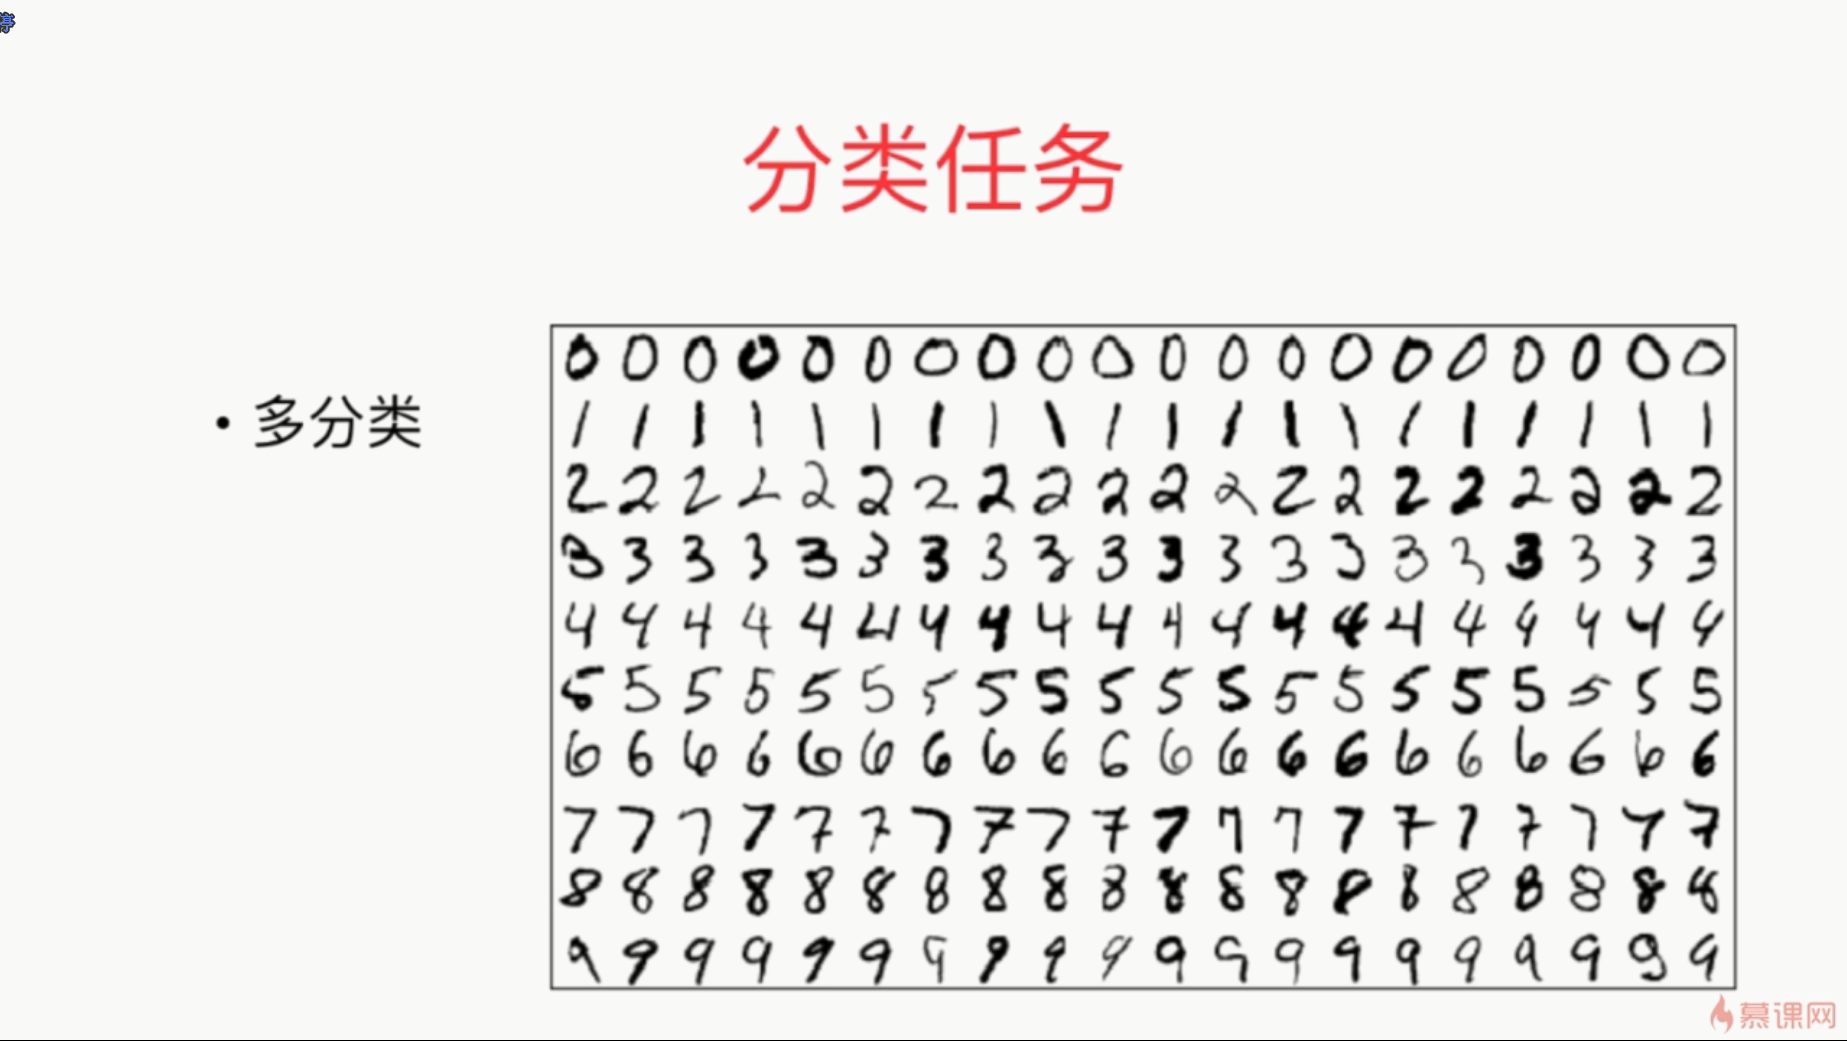 停
分类任务
• 多分类
0 0 0 0 0 0 0 0 0 0 0 0 0 0 0 0 0 0 0 0
1 1 1 1 1 1 1 1 1 1 1 1 1 1 1 1 1 1 1 1
2 2 2 2 2 2 2 2 2 2 2 2 2 2 2 2 2 2 2 2
3 3 3 3 3 3 3 3 3 3 3 3 3 3 3 3 3 3 3 3
4 4 4 4 4 4 4 4 4 4 4 4 4 4 4 4 4 4 4 4
5 5 5 5 5 5 5 5 5 5 5 5 5 5 5 5 5 5 5 5
6 6 6 6 6 6 6 6 6 6 6 6 6 6 6 6 6 6 6 6
7 7 7 7 7 7 7 7 7 7 7 7 7 7 7 7 7 7 7 7
8 8 8 8 8 8 8 8 8 8 8 8 8 8 8 8 8 8 8 8
9 9 9 9 9 9 9 9 9 9 9 9 9 9 9 9 9 9 9 9
慕课网